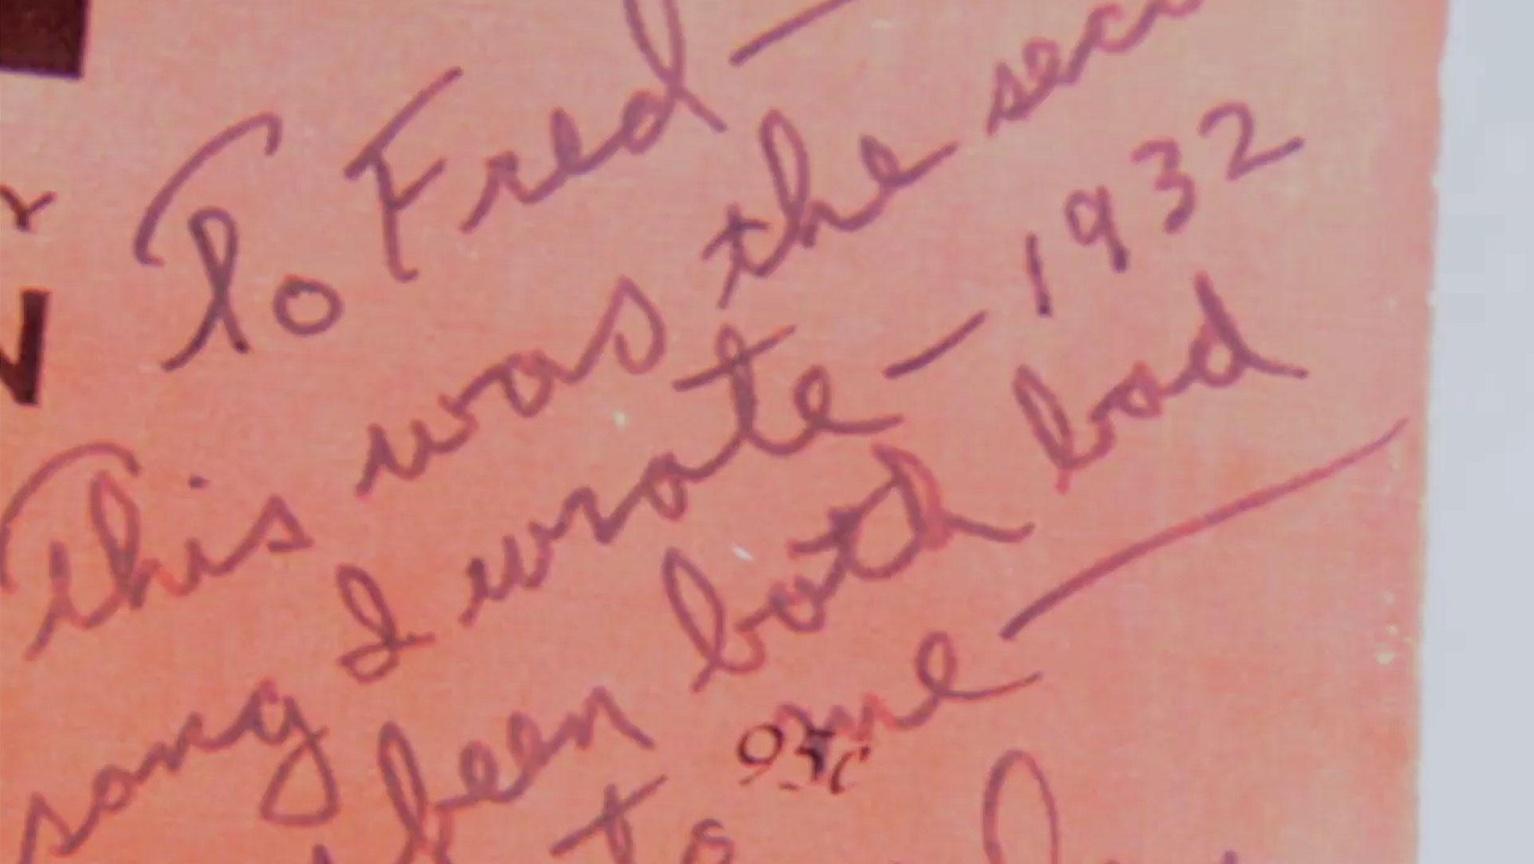 To Fred—
This was the
song I wrote — 1932
been both bad
to me —
95¢